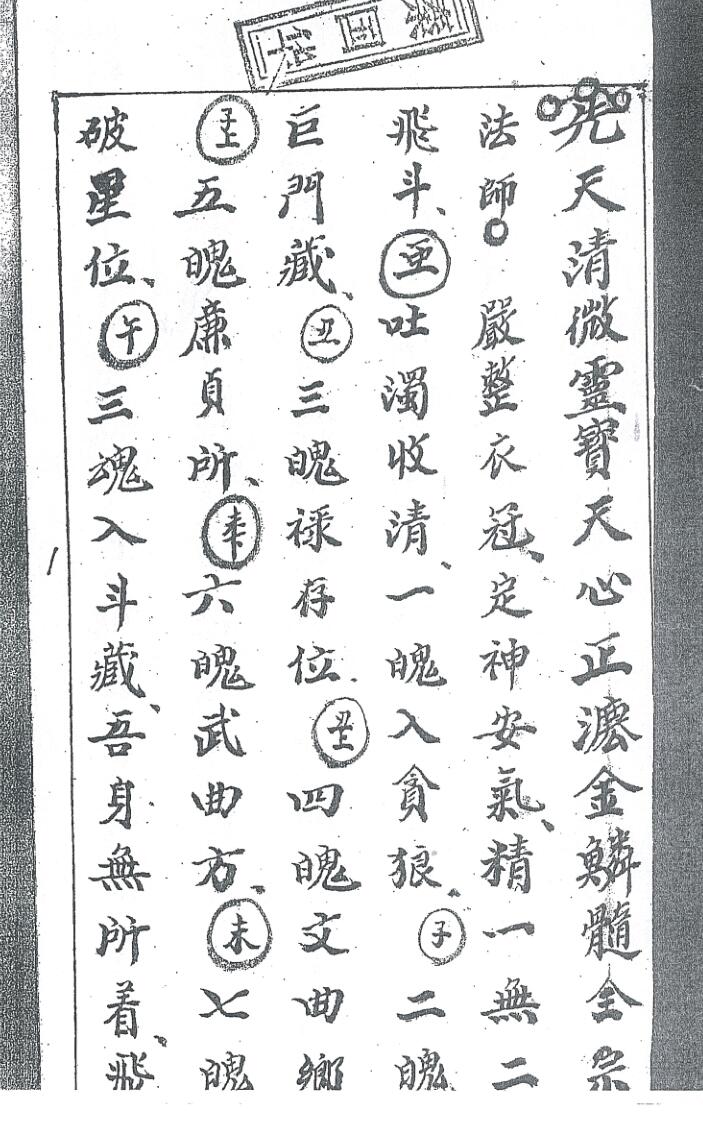 先天清微靈寶天心正瀍金鱗髓全宗
法師 嚴整衣冠、定神安氣、精一無二
飛斗、吐濁收清、一魄入貪狼、子二魄
巨門藏、丑三魄祿存位、四魄文曲鄉
五魄廉貞所、六魄武曲方、未七魄
破星位、午三魂入斗藏、吾身無所着、飛